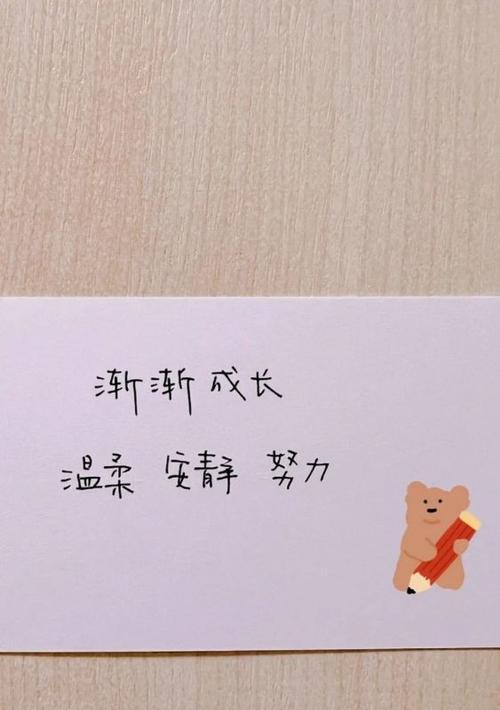 渐渐成长
温柔 安静 努力